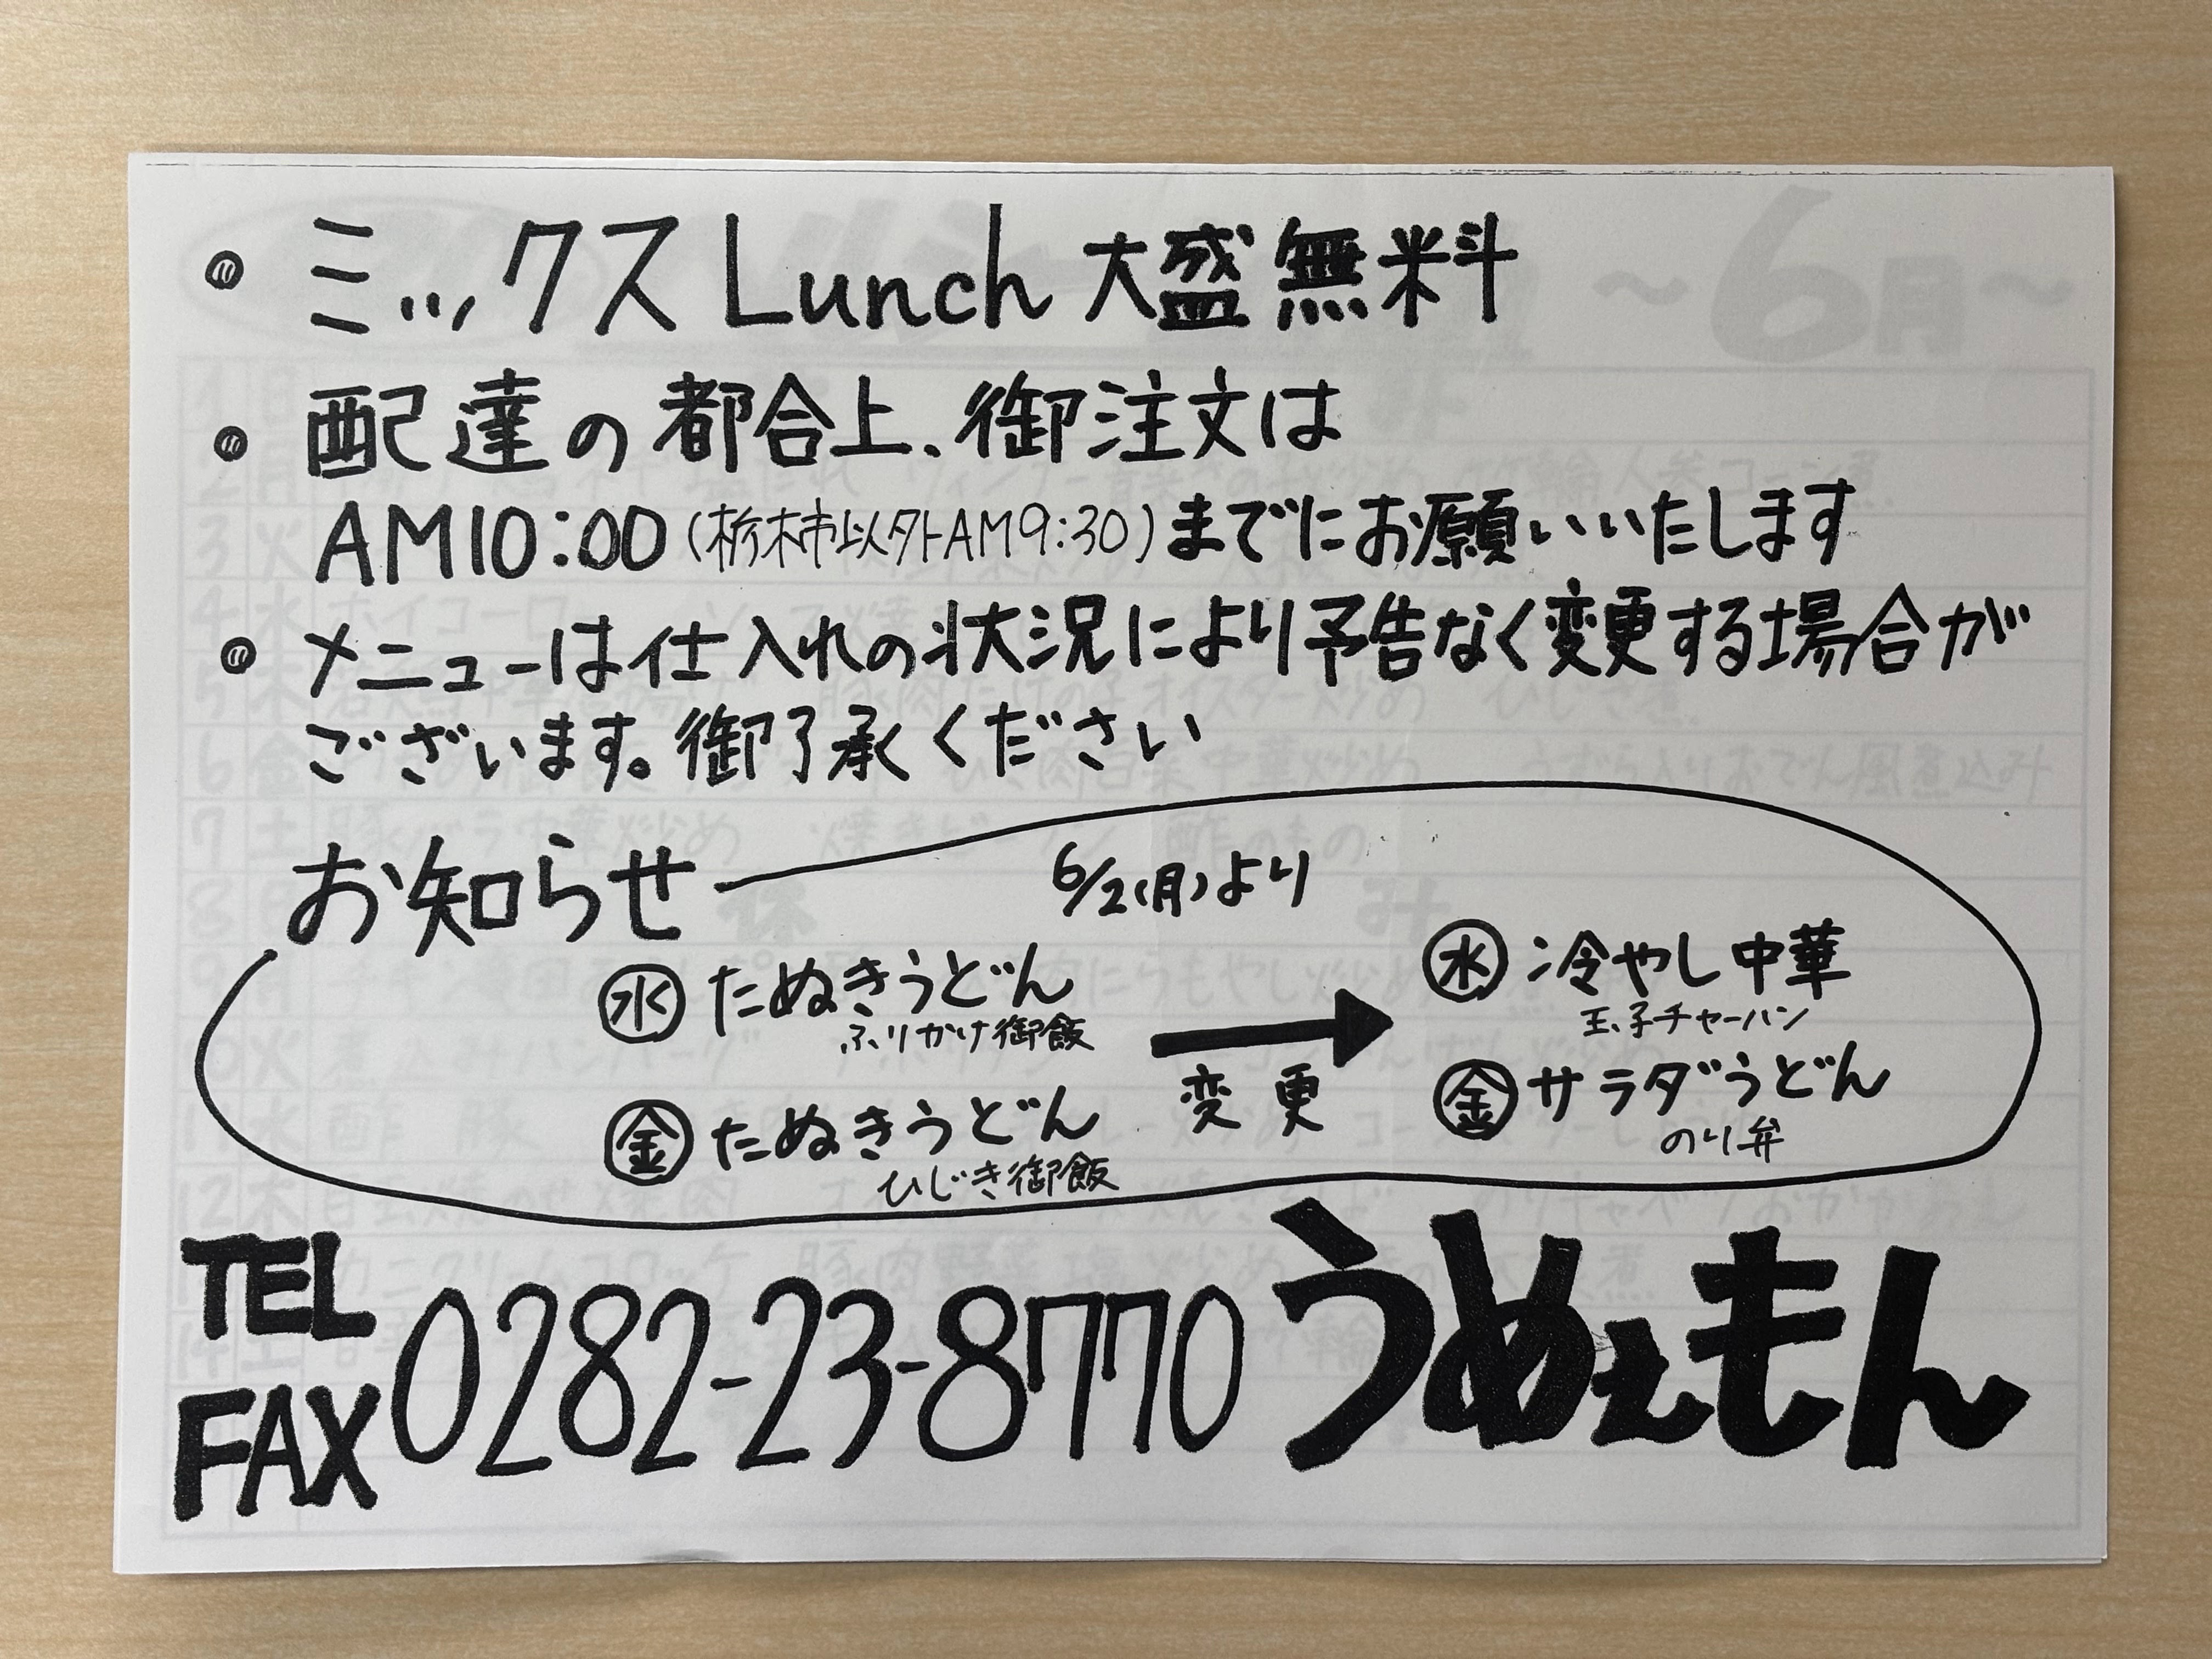 • ミックス Lunch 大盛無料
• 配達の都合上、御注文は
AM10:00(栃木市以外AM9:30)までにお願いいたします
• メニューは仕入れの状況により予告なく変更する場合が
ございます。御了承ください
お知らせ
6/2(月)より
㊌ たぬきうどん
ふりかけ御飯
㊎ たぬきうどん
ひじき御飯
変更
㊌ 冷やし中華
玉子チャーハン
㊎ サラダうどん
のり弁
TEL
FAX
0282-23-8770 うめぇもん
~6月~